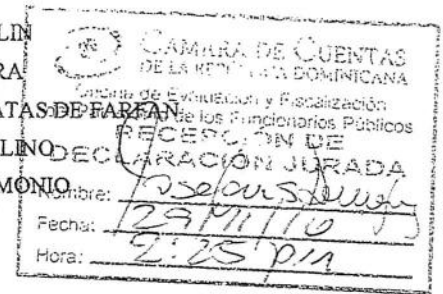 LIN
RA
ATAS DE FARFAN
LINO
MONIO
CAMARA DE CUENTAS
DE LA REPUBLICA DOMINICANA
Oficina de Evaluación y Fiscalización
de los Funcionarios Públicos
RECEPCIÓN DE
DECLARACIÓN JURADA
Nombre:
Fecha:
Hora: 2:25 pm